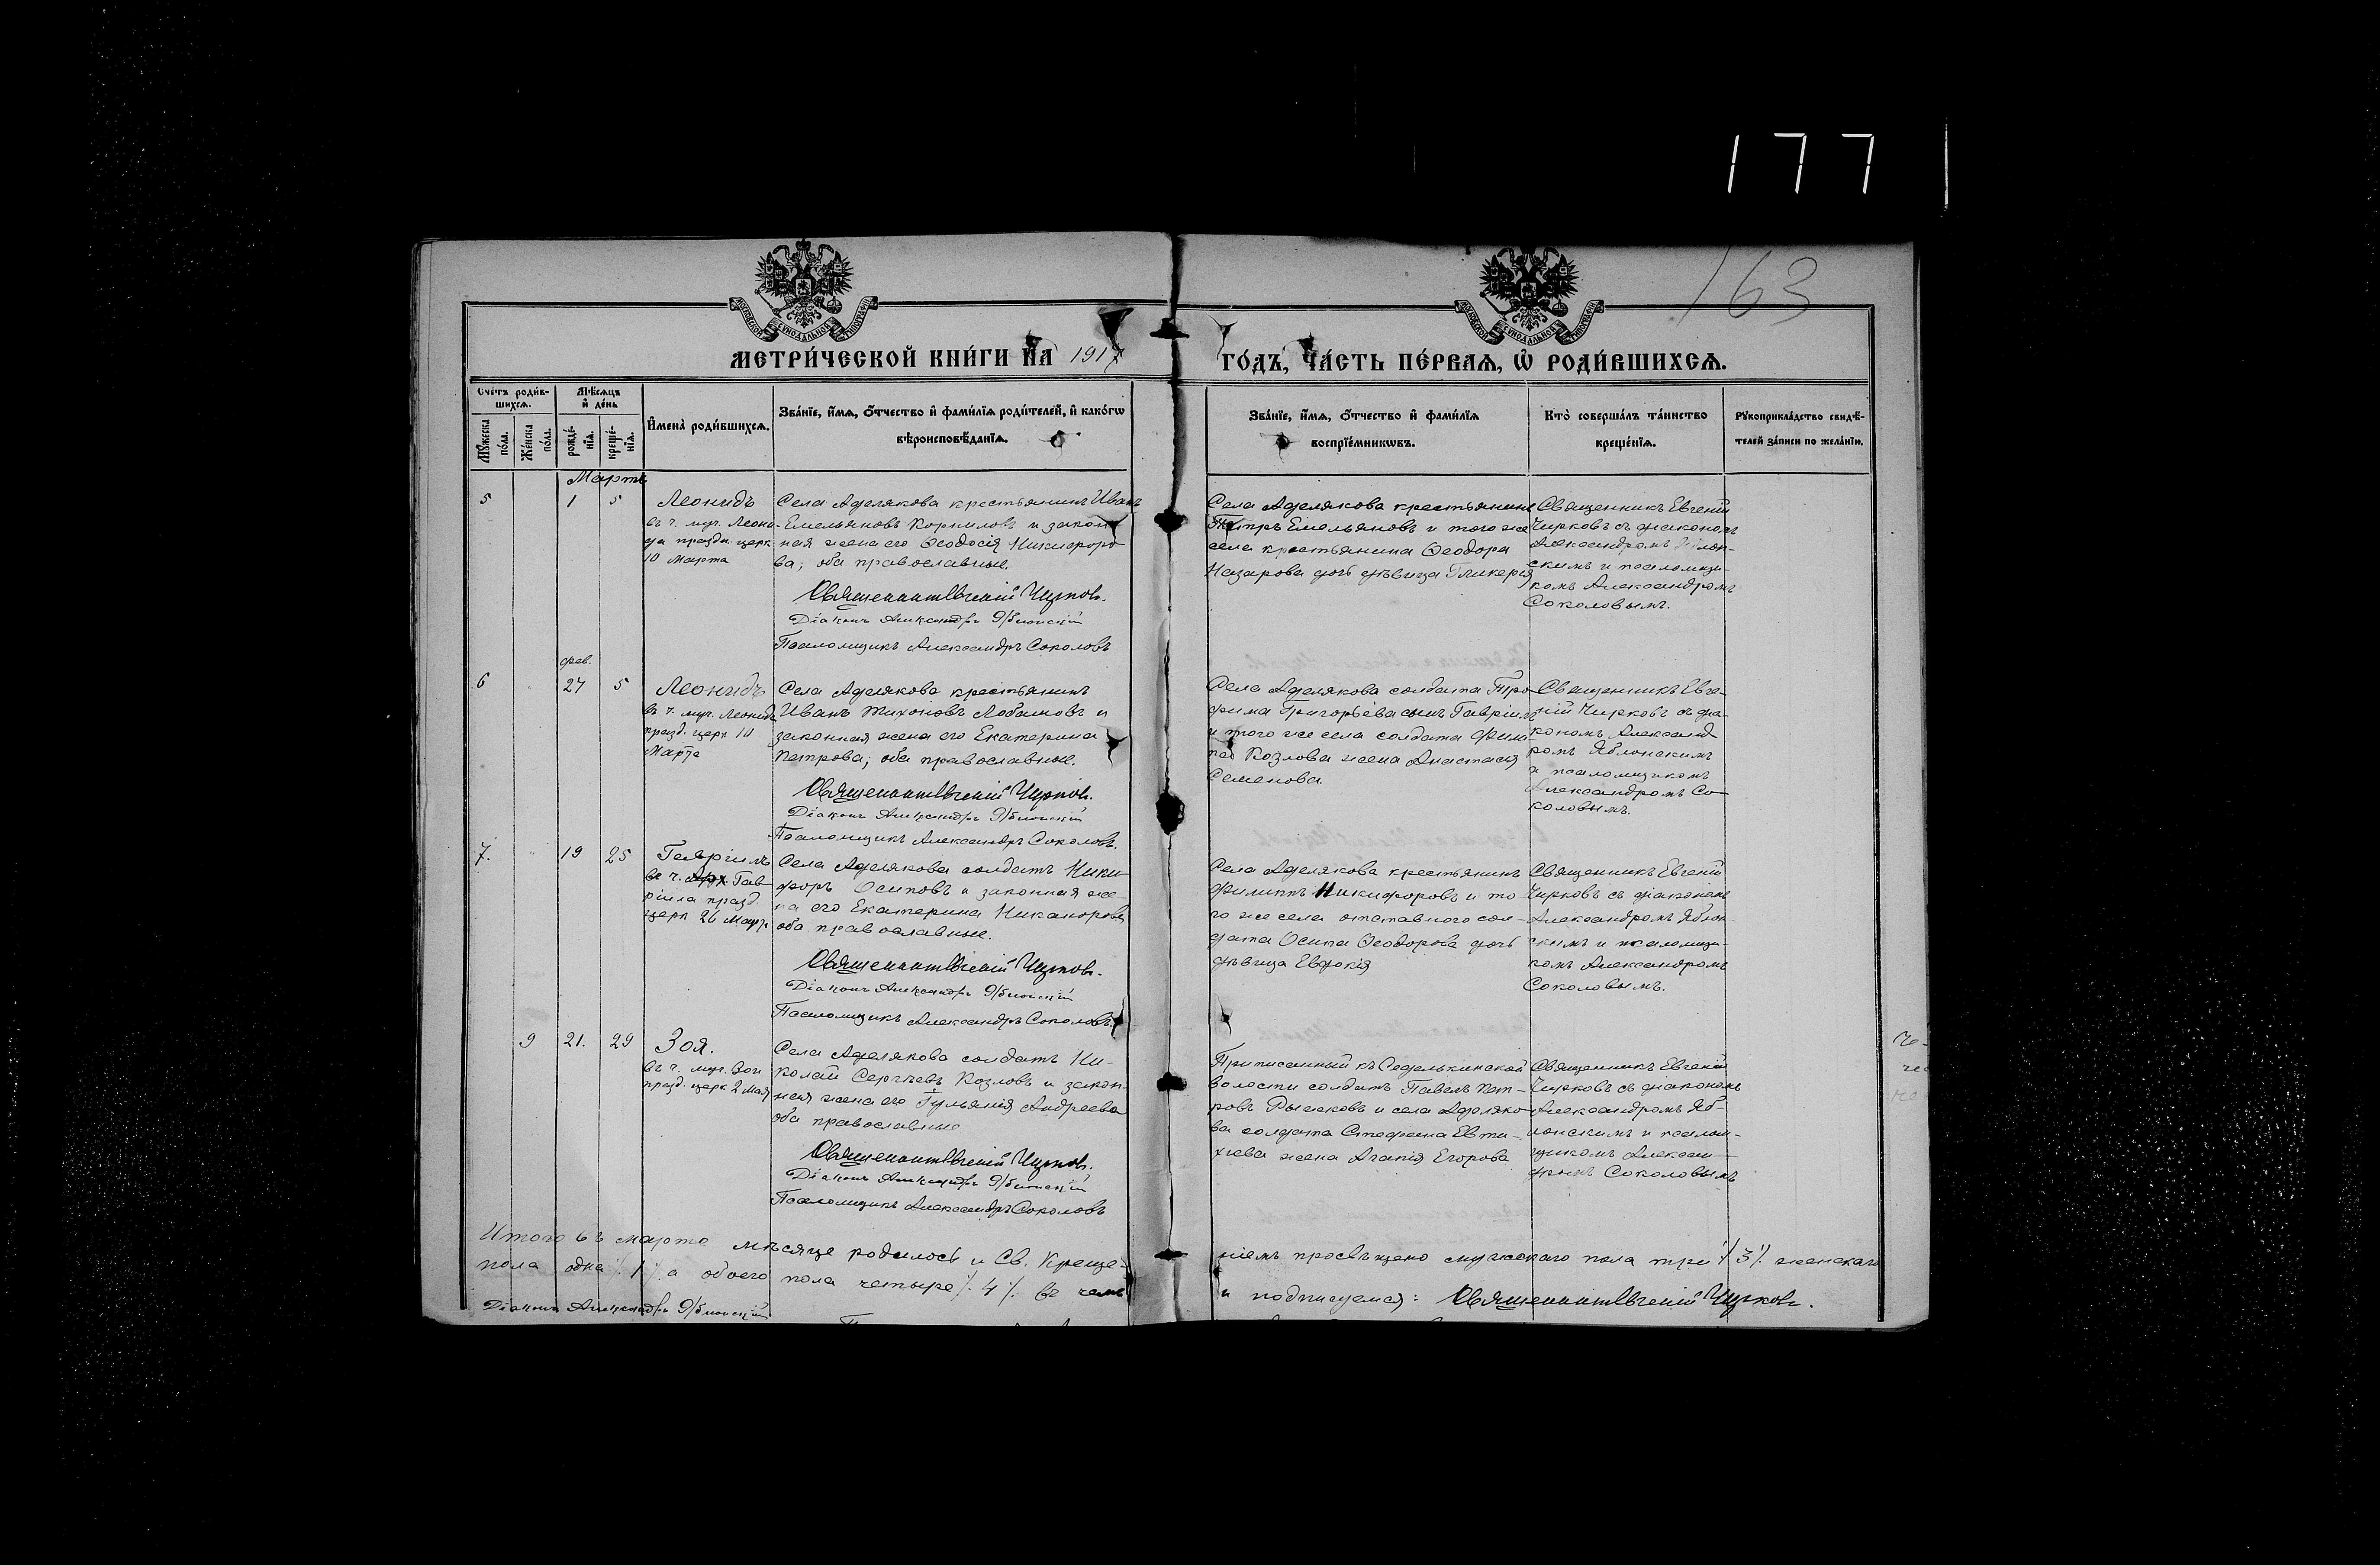 177
163
МЕТРИ́ЧЕСКОЙ КНИ́ГИ НА 1917
ГО́ДЪ, ЧА́СТЬ ПЕ́РВАѦ, Ѡ҆ РОДИ́ВШИХСѦ.
Сче́тъ роди́в-
шихсѧ.
Мѣ́сѧцъ
и҆ де́нь
Мꙋ́жеска
по́ла.
Же́нска
по́ла.
рожде́-
нїѧ.
креще́-
нїѧ.
И҆мена̀ роди́вшихсѧ.
Зва́нїе, и҆́мѧ, ѻ҆́тчество и҆ фами́лїѧ роди́телей, и҆ како́гѡ
вѣроисповѣ́данїѧ.
Зва́нїе, и҆́мѧ, ѻ҆́тчество и҆ фами́лїѧ
воспрїе́мникѡвъ.
Кто̀ соверша́лъ та́инство
креще́нїѧ.
Рꙋкоприкла́дство свидѣ́-
телей за́писи по жела́нїю.
Мартъ
5 1 5
Леонидъ
въ ч. муч. Леони-
да праздн. церк.
10 Марта
Села Аделякова крестьянинъ Иванъ
Емельяновъ Корниловъ и закон-
ная жена его Ѳеодосія Никифоро-
ва; оба православные.
Священникъ Евгеній Чирковъ.
Діаконъ Александръ Яблонскій
Псаломщикъ Александръ Соколовъ
Села Аделякова крестьянинъ
Петръ Емельяновъ и того же
села крестьянина Ѳеодора
Назарова дочь дѣвица Гликерія
Священникъ Евгеній
Чирковъ съ діакономъ
Александромъ Яблон-
скимъ и псаломщи-
комъ Александромъ
Соколовымъ.
фев.
6 27 5
Леонидъ
въ ч. муч. Леонида
празд. церк 10
Марта
Села Аделякова крестьянинъ
Иванъ Тихоновъ Лобановъ и
законная жена его Екатерина
Петрова; оба православные.
Священникъ Евгеній Чирковъ.
Діаконъ Александръ Яблонскій
Псаломщикъ Александръ Соколовъ.
Села Аделякова солдата Тро-
фима Григорьева сынъ Гавріилъ
и того же села солдата Фили-
па Козлова жена Анастасія
Семенова.
Священникъ Евге-
ній Чирковъ съ діа-
кономъ Александ-
ромъ Яблонскимъ
и псаломщикомъ
Александромъ Со-
коловымъ.
7. 19 25
Гавріилъ
въ ч. Арх. Гав-
ріила празд.
церк 26 Март
Села Аделякова солдатъ Ники-
форъ Осиповъ и законная же-
на его Екатерина Никанорова
оба православные.
Священникъ Евгеній Чирковъ.
Діаконъ Александръ Яблонскій
Псаломщикъ Александръ Соколовъ.
Села Аделякова крестьянинъ
Филиппъ Никифоровъ и то-
го же села отставного сол-
дата Осипа Ѳеодорова дочь
дѣвица Евдокія
Священникъ Евгеній
Чирковъ съ діакономъ
Александромъ Яблон
скимъ и псаломщи-
комъ Александромъ
Соколовымъ.
9 21. 29
Зоя.
въ ч. муч. Зои
празд. церк 2 Мая
Села Аделякова солдатъ Ни-
колай Сергѣевъ Козловъ и закон-
ная жена его Гульянія Андреева
оба православные
Священникъ Евгеній Чирковъ.
Діаконъ Александръ Яблонскій
Псаломщикъ Александръ Соколовъ
Приписанный къ Седелькинской
волости солдатъ Павелъ Пет-
ровъ Рыжковъ и села Аделяко-
ва солдата Стефана Евти-
хіева жена Агапія Егорова
Священникъ Евгеній
Чирковъ съ діакономъ
Александромъ Яб-
лонскимъ и псалом-
щикомъ Алексан-
дромъ Соколовымъ
Итого въ мартѣ мѣсяце родилось и Св. Креще-
ніемъ просвѣщено мужскаго пола три % 3 % женскаго
пола одна % 1 % а обоего пола четыре % 4 % въ чемъ
и подписуемся: Священникъ Евгеній Чирковъ.
Діаконъ Александръ Яблонскій